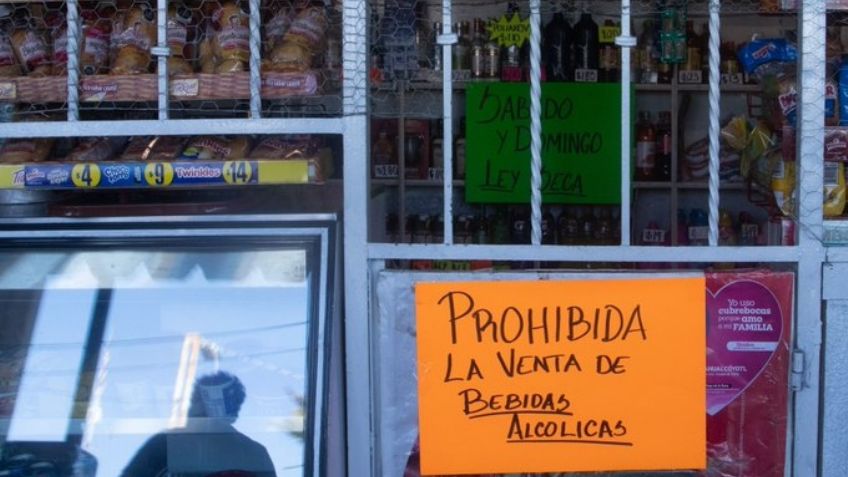 SABADO
Y DOMINGO
LEY SECA
$4
$9
Twinkles
$14
PROHIBIDA
LA VENTA DE
BEBIDAS
ALCOLICAS
Yo uso
cubrebocas
porque amo
a mi FAMILIA